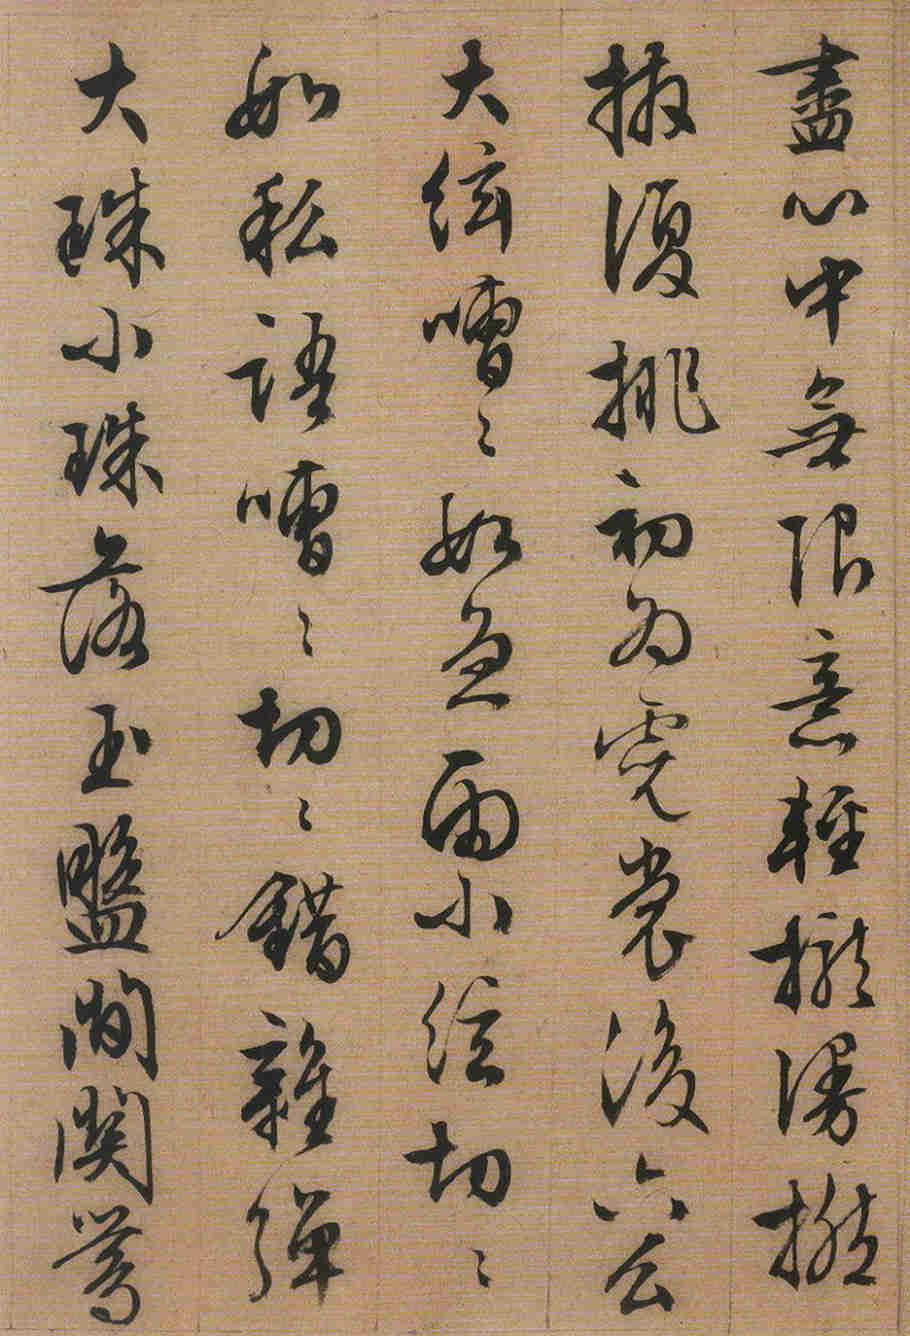 盡心中無限意輕攏慢撚
撥復挑初為霓裳後六么
大絃嘈〻如急雨小絃切〻
如私語嘈〻切〻錯雜彈
大珠小珠落玉盤間關鶯